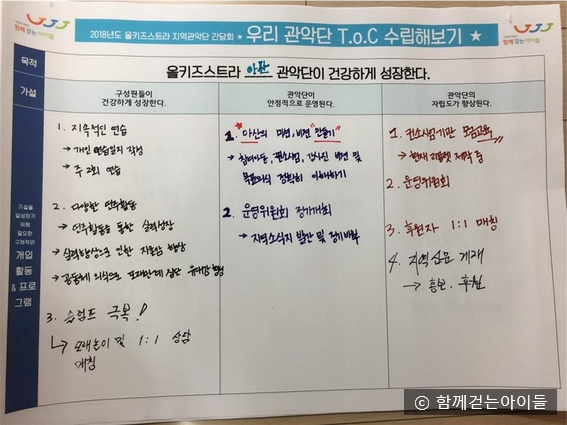 함께 걷는아이들
2018년도 올키즈스트라 지역관악단 간담회 ★ 우리 관악단 T.o.C 수립해보기 ★
함께 걷는아이들
목적
올키즈스트라 아산 관악단이 건강하게 성장한다.
가설
구성원들이
건강하게 성장한다.
관악단이
안정적으로 운영된다.
관악단의
자립도가 향상된다.
가설을
달성하기
위해
필요한
구체적인
개입
활동
& 프로
그램
1. 지속적인 연습
→ 개인 연습일지 작성
→ 주 2회 연습
2. 다양한 연주활동
→ 연주활동을 통한 실력성장
→ 실력향상으로 인한 자존감 향상
→ 공동체 의식으로 또래관계 집단 유대감 형성
3. 슬럼프 극복!
↳ 또래놀이 및 1:1 상담
매칭
1. "아산의 미션, 비전" 만들기"
→ 참여아동, 컨소시엄, 강사진 비전 및
목표의식 정확히 이해하기
2. 운영위원회 정기개최
→ 지역소식지 발간 및 정기배부
1. 컨소시엄기관 모금교육
→ 현재 리플렛 제작 중
2. 운영위원회
3. 후원자 1:1 매칭
4. 지역신문 게재
→ 홍보. 후원
ⓒ 함께걷는아이들